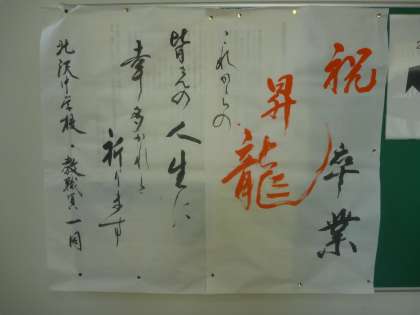 祝 卒業
昇龍
これからの
皆さんの人生に
幸多かれと
祈ります
北沢中学校・教職員一同